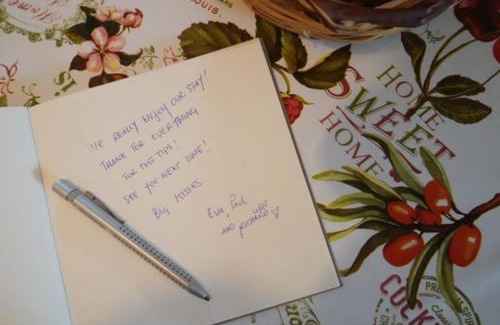 I'VE REALLY ENJOY OUR STAY!
THANK FOR EVERYTHING
FOR THE TIPS!
SEE YOU NEXT TIME!
BIG KISSES
EVA, PAUL
AND RICHARD
HOME
SWEET
HOME
COCK